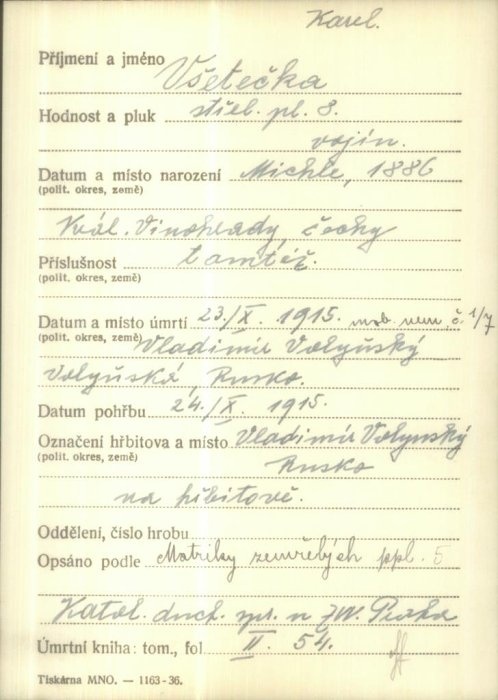 Karel.
Příjmení a jméno Všetečka
Hodnost a pluk střel. pl. 8.
vojín.
Datum a místo narození Michle, 1886
(polit. okres, země)
Král. Vinohrady, Čechy
Příslušnost tamtéž.
(polit. okres, země)
Datum a místo úmrtí 23./X. 1915. mob. nem. č. 1/7
(polit. okres, země) Vladimír Volyňský
Volyňská, Rusko.
Datum pohřbu 24./X. 1915.
Označení hřbitova a místo Vladimír Volynský
(polit. okres, země)
Rusko
na hřbitově.
Oddělení, číslo hrobu
Opsáno podle Matriky zemřelých ppl. 5
Katol. duch. spr. u ZVV. Praha
Úmrtní kniha: tom., fol II. 54.
Tiskárna MNO. — 1163-36.